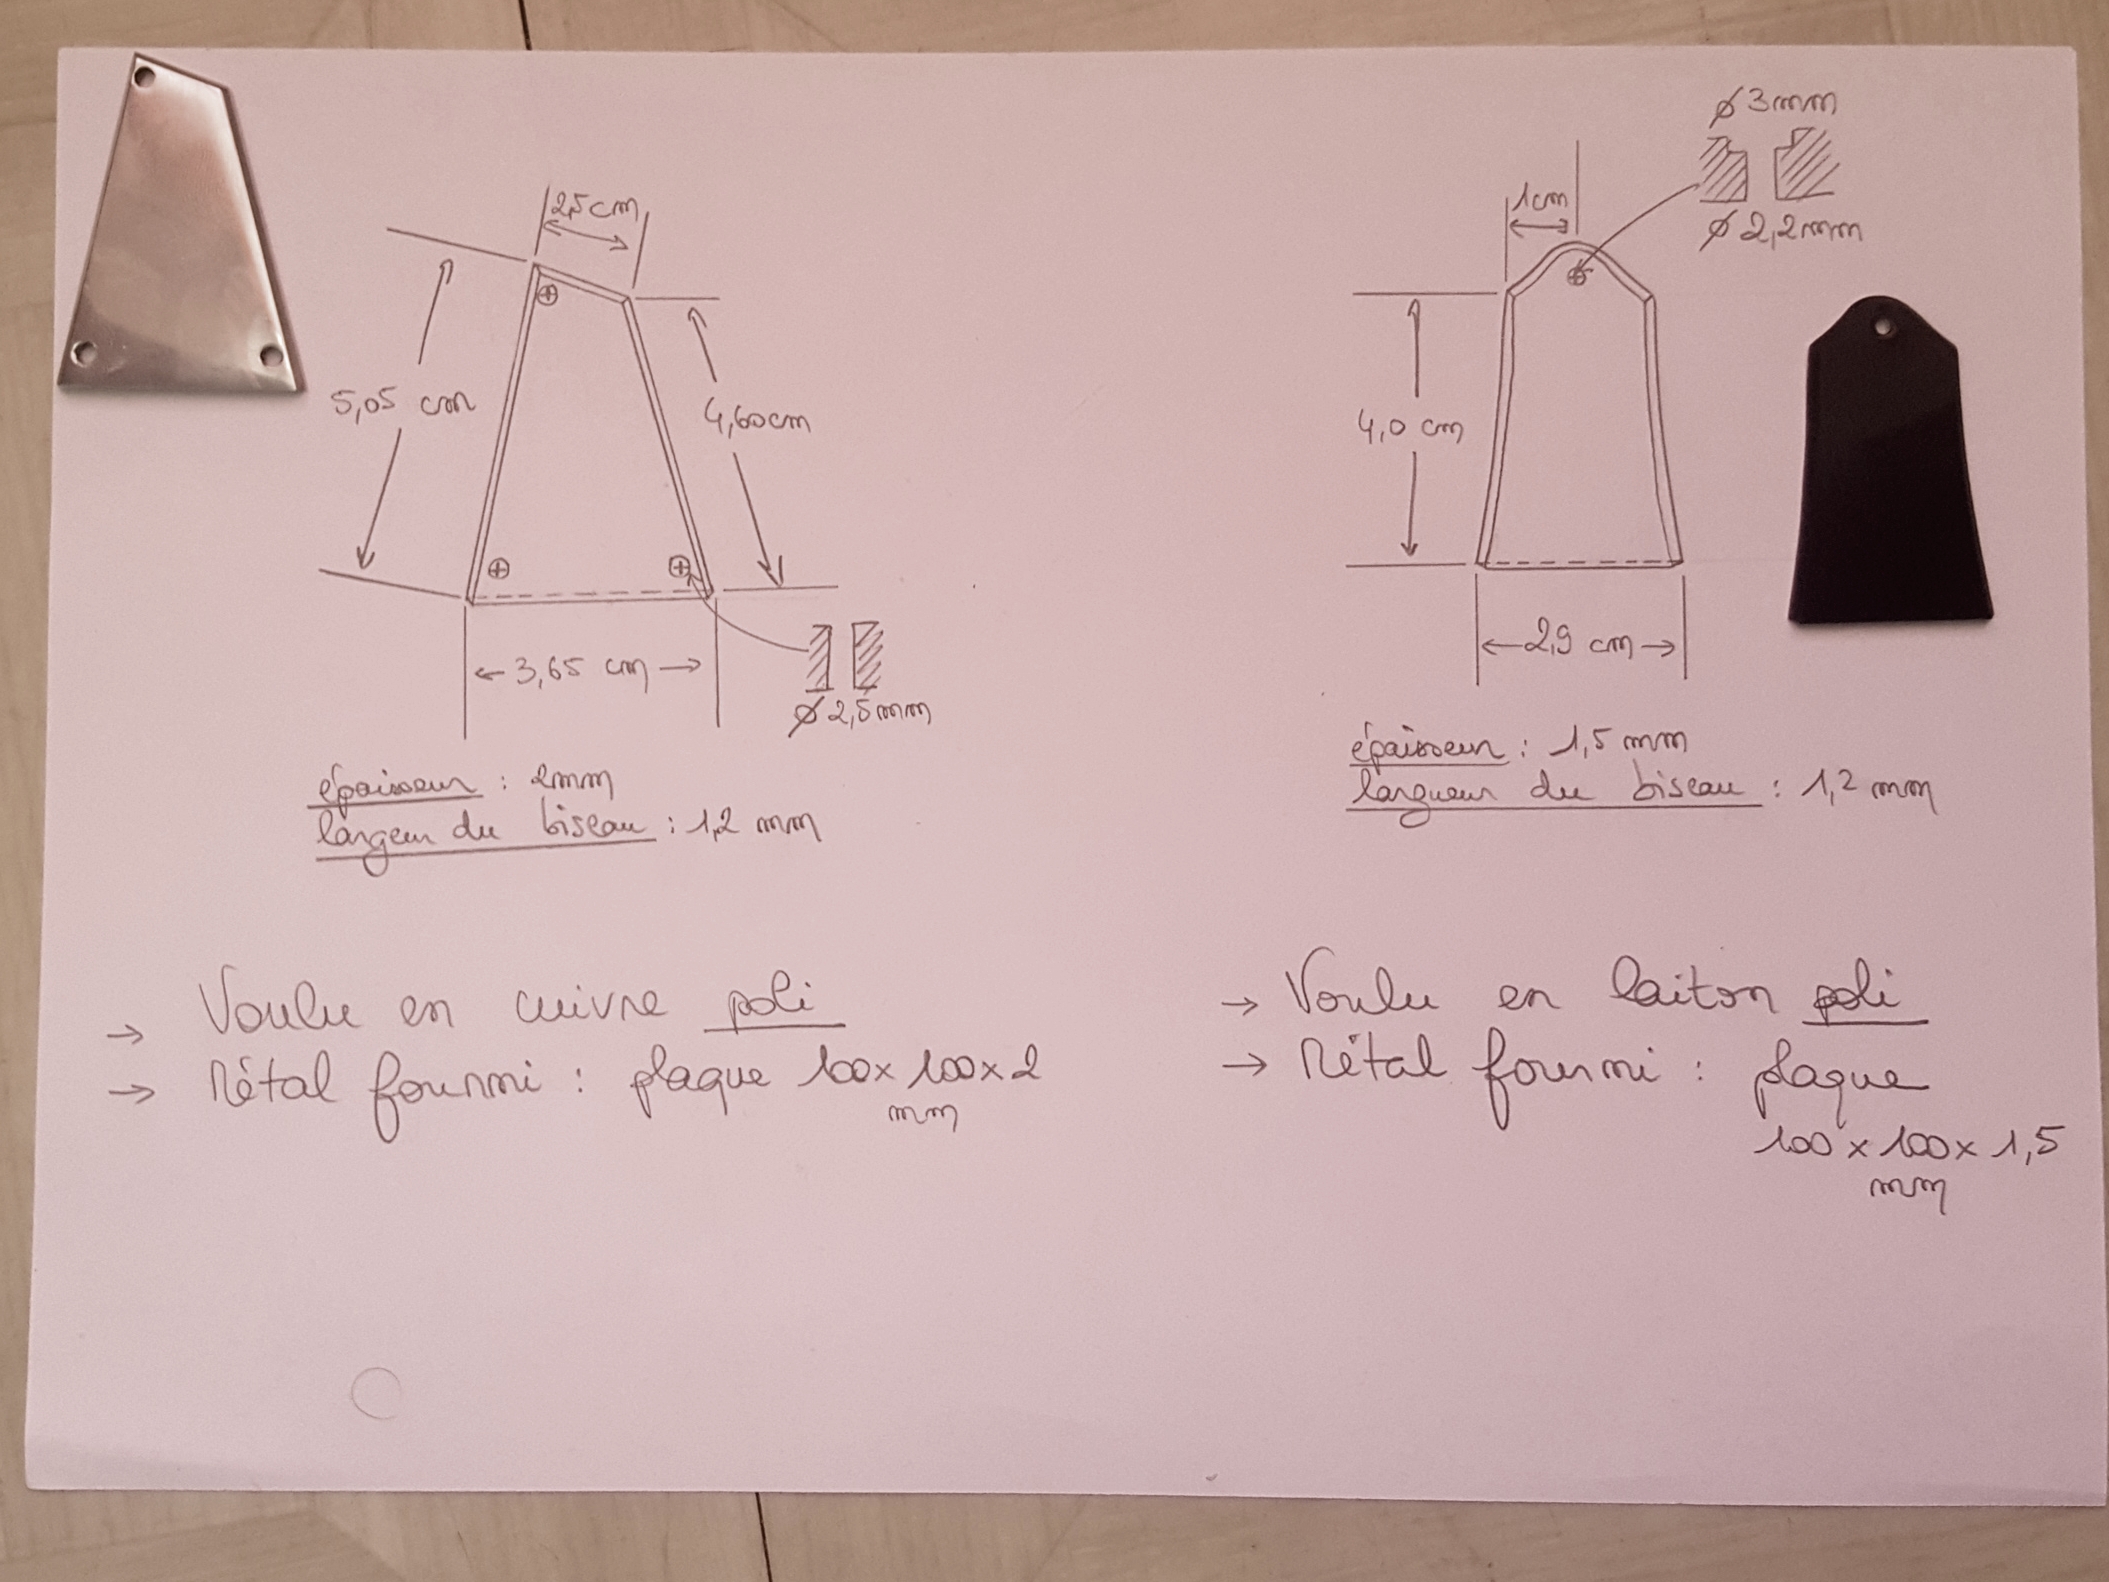 2,5 cm
5,05 cm
4,60 cm
3,65 cm
ø 2,5 mm
épaisseur : 2mm
largeur du biseau : 1,2 mm
→ Voulu en cuivre poli
→ Métal fourni : plaque 100 x 100 x 2
mm
ø 3 mm
ø 2,2 mm
1 cm
4,0 cm
2,9 cm
épaisseur : 1,5 mm
largueur du biseau : 1,2 mm
→ Voulu en laiton poli
→ Métal fourni : plaque
100 x 100 x 1,5
mm